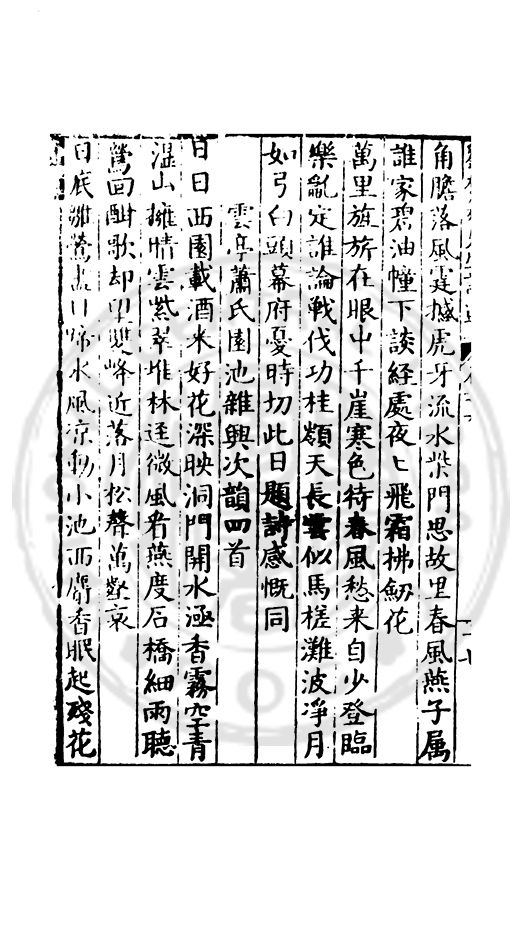 角膽落風霆撼虎牙流水柴門思故里春風燕子属
誰家碧油幢下談経處夜〻飛霜拂劒花
萬里旌旂在眼中千崖寒色待春風愁来自少登臨
樂亂定誰論戦伐功桂嶺天長雲似馬槎灘波凈月
如弓白頭幕府憂時切此日題詩感慨同
雲亭蕭氏園池雜興次韻四首
日日西園載酒来好花深映洞門開水涵香霧空青
濕山擁晴雲紫翠堆林逕微風看燕度石橋細雨聽
鶯回酣歌却雙峰近落月松聲萬壑哀
日底雛鶯盡日啼水風涼動小池西麝香眠起殘花